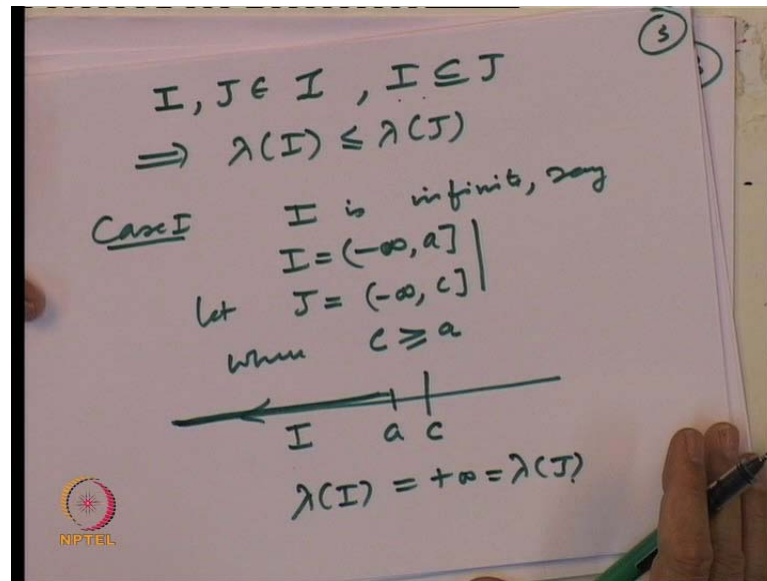 3
I, J ∈ I , I ⊆ J
⟹ λ(I) ≤ λ(J)
Case I I is infinite, say
I = (-∞, a]
let J = (-∞, c]
when c ⩾ a
I a c
λ(I) = +∞ = λ(J)
NPTEL